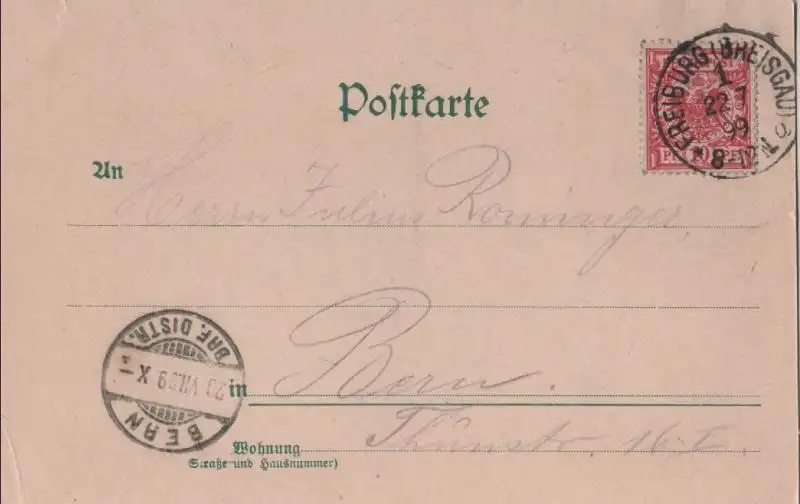 Postkarte
FREIBURG (BREISGAU)
1
22 7
99
8-12 N.
PF 10 PF
An
Herrn Julius Rominger,
BRF. DISTR.
23 VII.99 X
BERN
in Bern.
Wohnung Thunstr. 16. I.
(Straße und Hausnummer)